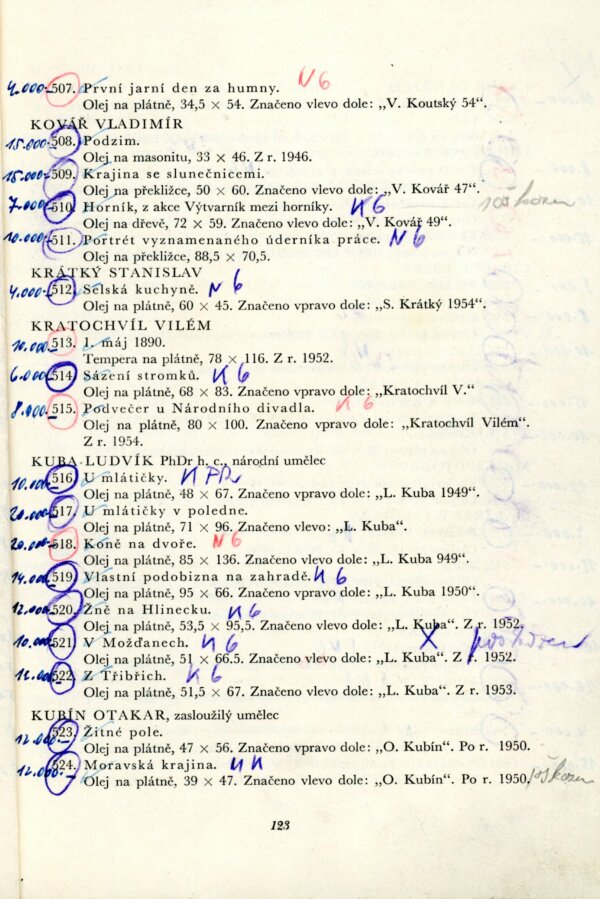 4.000.- 507. První jarní den za humny. N6
Olej na plátně, 34,5 × 54. Značeno vlevo dole: „V. Koutský 54“.
KOVÁŘ VLADIMÍR
15.000.- 508. Podzim.
Olej na masonitu, 33 × 46. Z r. 1946.
15.000.- 509. Krajina se slunečnicemi.
Olej na překližce, 50 × 60. Značeno vlevo dole: „V. Kovář 47“.
7.000.- 510. Horník, z akce Výtvarník mezi horníky. K6
Olej na dřevě, 72 × 59. Značeno vlevo dole: „V. Kovář 49“.
10.000.- 511. Portrét vyznamenaného úderníka práce. N6
Olej na překližce, 88,5 × 70,5.
KRÁTKÝ STANISLAV
4.000.- 512. Selská kuchyně. N6
Olej na plátně, 60 × 45. Značeno vpravo dole: „S. Krátký 1954“.
KRATOCHVÍL VILÉM
10.000.- 513. 1. máj 1890.
Tempera na plátně, 78 × 116. Z r. 1952.
6.000.- 514. Sázení stromků. K6
Olej na plátně, 68 × 83. Značeno vpravo dole: „Kratochvíl V.“
8.000.- 515. Podvečer u Národního divadla. K6
Olej na plátně, 80 × 100. Značeno vpravo dole: „Kratochvíl Vilém“.
Z r. 1954.
KUBA LUDVÍK PhDr h. c., národní umělec
10.000.- 516. U mlátičky.
Olej na plátně, 48 × 67. Značeno vpravo dole: „L. Kuba 1949“.
20.000.- 517. U mlátičky v poledne.
Olej na plátně, 71 × 96. Značeno vlevo: „L. Kuba“.
20.000.- 518. Koně na dvoře. N6
Olej na plátně, 85 × 136. Značeno vlevo dole: „L. Kuba 949“.
14.000.- 519. Vlastní podobizna na zahradě. K6
Olej na plátně, 95 × 66. Značeno vlevo dole: „L. Kuba 1950“.
12.000.- 520. Žně na Hlinecku. K6
Olej na plátně, 53,5 × 95,5. Značeno vlevo dole: „L. Kuba“. Z r. 1952.
10.000.- 521. V Možďanech. K6 X
Olej na plátně, 51 × 66.5. Značeno vlevo dole: „L. Kuba“. Z r. 1952.
12.000.- 522. Z Třibřich. K6
Olej na plátně, 51,5 × 67. Značeno vlevo dole: „L. Kuba“. Z r. 1953.
KUBÍN OTAKAR, zasloužilý umělec
12.000.- 523. Žitné pole.
Olej na plátně, 47 × 56. Značeno vpravo dole: „O. Kubín“. Po r. 1950.
12.000.- 524. Moravská krajina.
Olej na plátně, 39 × 47. Značeno vlevo dole: „O. Kubín“. Po r. 1950.
123